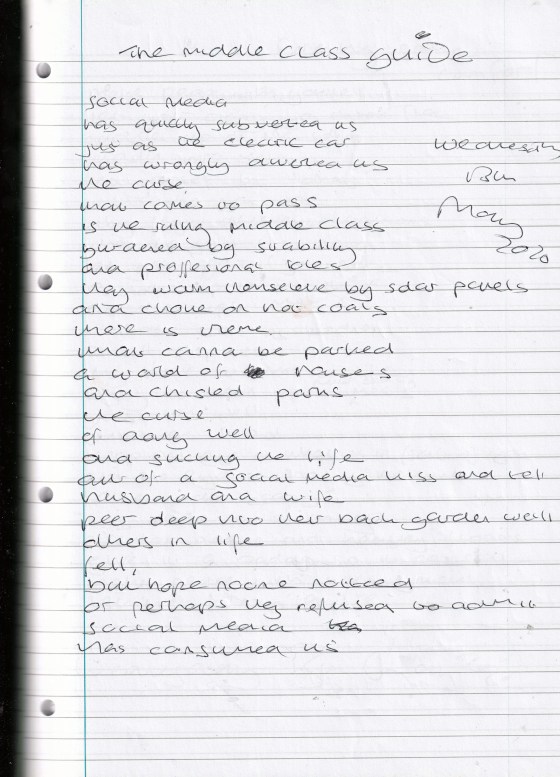 The middle class guide
social media
has quickly subverted us
just as the electric car
has wrongly diverted us
Wednesday
the curse
13th
that comes to pass
May
is the ruling middle class
2020
burdered by suability
and proffesional roles
they warm themseleve by solar panels
and choke on hot coals
there is theme
what canna be parked
a world of houses
and chisled paths
the curse
of doing well
and sucking the life
out of a social media kiss and tell
husband and wife
peer deep into their back garden well
others in life
fell,
but hope noone noticed
or perhaps they refused to admit
social media
has consumed us